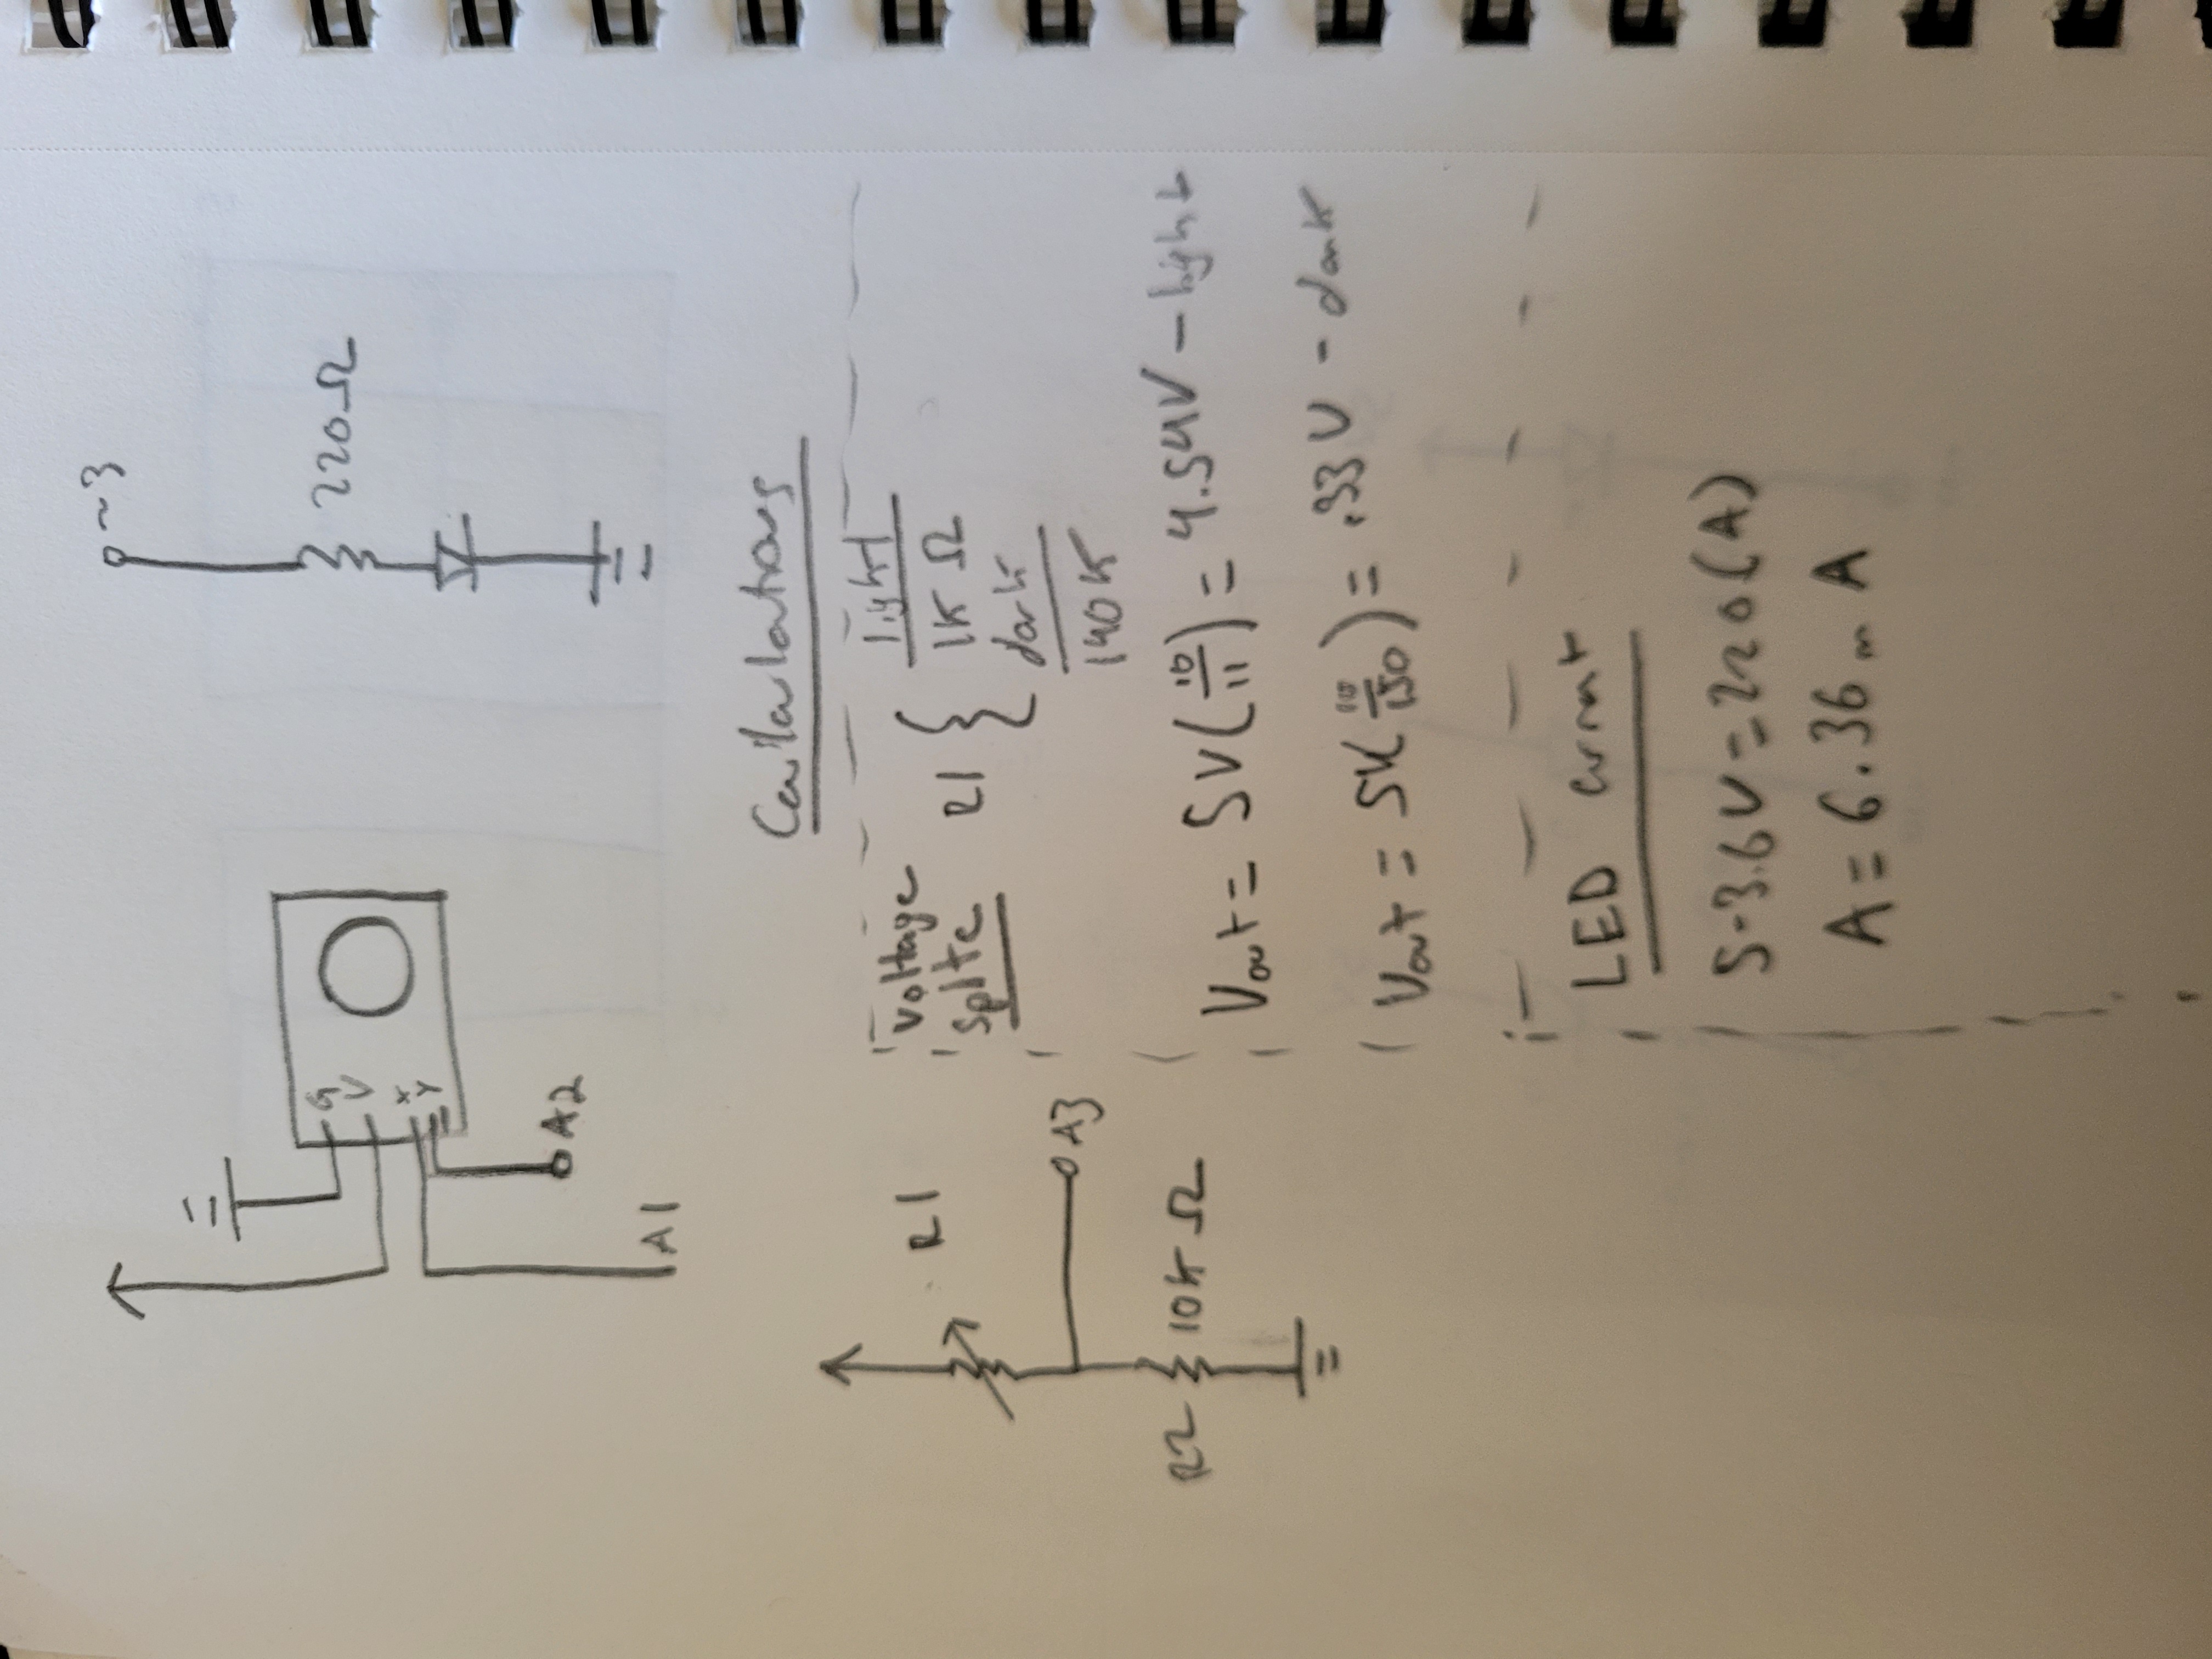 ~3
G
V
X
Y
220Ω
A2
A1
Calculations
R1
Voltage
splite
R1 { light
1K Ω
dark
140K
A3
R2 10K Ω
Vout = 5V(10/11) = 4.54V - light
Vout = 5V(10/150) = .33V - dark
LED current
5-3.6V = 220(A)
A = 6.36mA